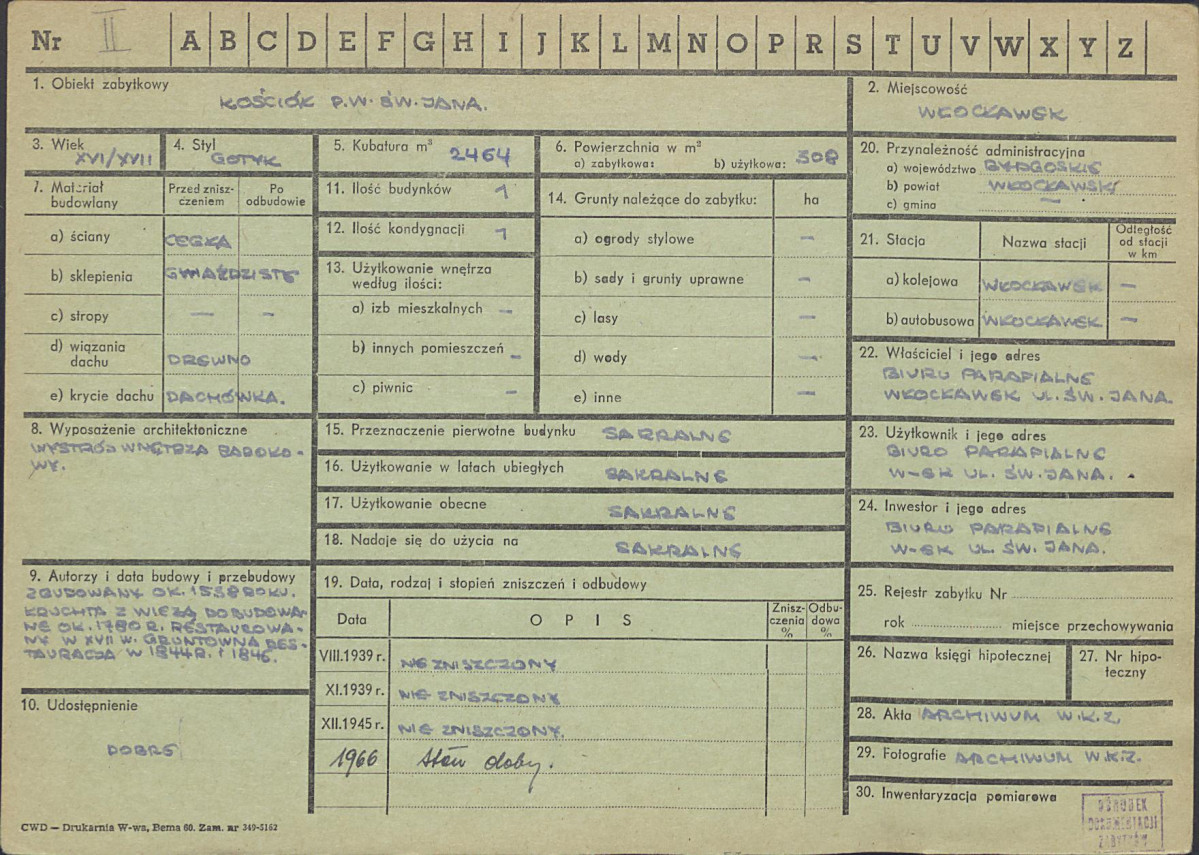 Nr II A B C D E F G H I J K L M N O P R S T U V W X Y Z
1. Obiekt zabytkowy
KOŚCIÓŁ P.W. ŚW. JANA.
2. Miejscowość
WŁOCŁAWEK
3. Wiek
XVI/XVII
4. Styl
GOTYK
5. Kubatura m³ 2464
6. Powierzchnia w m²
a) zabytkowa: b) użytkowa: 308
20. Przynależność administracyjna
a) województwo BYDGOSKIE
b) powiat WŁOCŁAWSKI
c) gmina —
7. Materiał
budowlany
Przed znisz-
czeniem
Po
odbudowie
a) ściany CEGŁA
b) sklepienia GWIAŹDZISTE
c) stropy — —
d) wiązania
dachu DREWNO
e) krycie dachu DACHÓWKA.
11. Ilość budynków 1
12. Ilość kondygnacji 1
13. Użytkowanie wnętrza
według ilości:
a) izb mieszkalnych —
b) innych pomieszczeń —
c) piwnic —
14. Grunty należące do zabytku: ha
a) ogrody stylowe —
b) sady i grunty uprawne —
c) lasy —
d) wody —
e) inne —
21. Stacja Nazwa stacji
Odległość
od stacji
w km
a) kolejowa WŁOCŁAWEK —
b) autobusowa WŁOCŁAWEK —
22. Właściciel i jego adres
BIURO PARAFIALNE
WŁOCŁAWEK UL. ŚW. JANA.
8. Wyposażenie architektoniczne
WYSTRÓJ WNĘTRZA BAROKO-
WY.
15. Przeznaczenie pierwotne budynku SAKRALNE
16. Użytkowanie w latach ubiegłych SAKRALNE
17. Użytkowanie obecne SAKRALNE
18. Nadaje się do użycia na SAKRALNE
23. Użytkownik i jego adres
BIURO PARAFIALNE
W-EK UL. ŚW. JANA.
24. Inwestor i jego adres
BIURO PARAFIALNE
W-EK UL. ŚW. JANA.
9. Autorzy i data budowy i przebudowy
ZBUDOWANY OK. 1538 ROKU.
KRUCHTA Z WIEŻĄ DOBUDOWA-
NE OK. 1780 R. RESTAUROWA-
NY W XVII W. GRUNTOWNA RES-
TAURACJA W 1844R. I 1846.
10. Udostępnienie
DOBRE
19. Data, rodzaj i stopień zniszczeń i odbudowy
Data OPIS
Znisz-
czenia
%
Odbu-
dowa
%
VIII.1939 r. NIE ZNISZCZONY
XI.1939 r. NIE ZNISZCZONY
XII.1945 r. NIE ZNISZCZONY.
1966 Stan dobry.
25. Rejestr zabytku Nr
rok miejsce przechowywania
26. Nazwa księgi hipotecznej
27. Nr hipo-
teczny
28. Akta ARCHIWUM W.K.Z.
29. Fotografie ARCHIWUM W.K.Z.
30. Inwentaryzacja pomiarowa
OŚRODEK
DOKUMENTACJI
ZABYTKÓW
CWD — Drukarnia W-wa, Bema 60. Zam. nr 349-5162